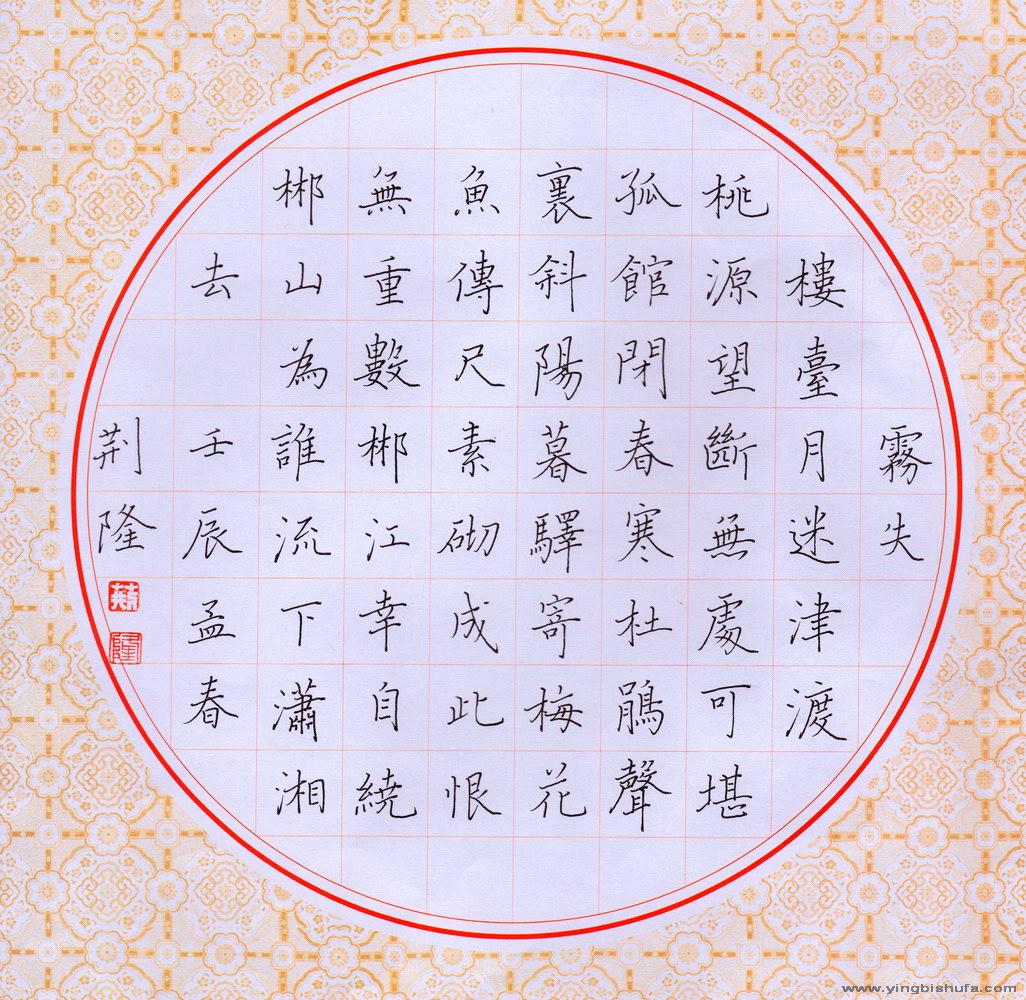 霧失
樓臺月迷津渡
桃源望斷無處可堪
孤館閉春寒杜鵑聲
裏斜陽暮驛寄梅花
魚傳尺素砌成此恨
無重數郴江幸自繞
郴山為誰流下瀟湘
去
壬辰孟春
荆隆
www.yingbishufa.com